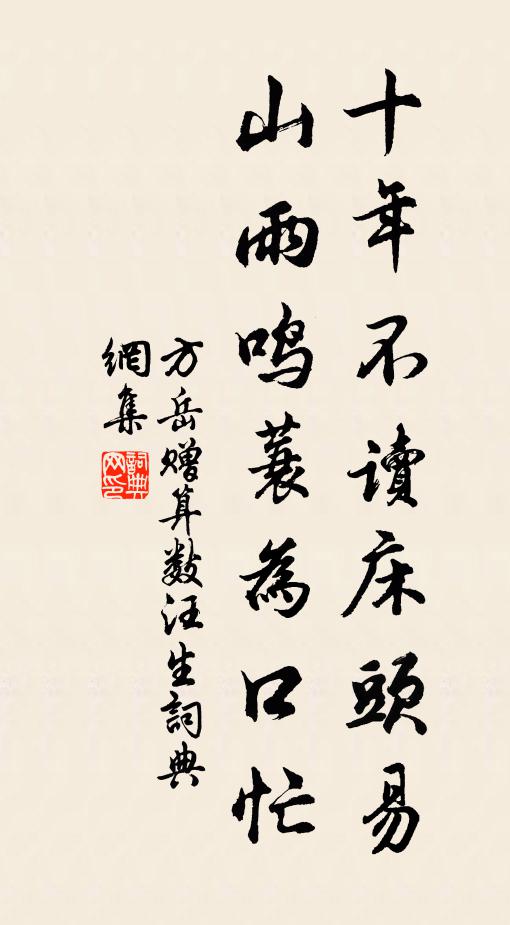 十年不讀床頭易
山雨鳴蓑為口忙
方岳赠算数汪生詞典
網集
詞典
网印